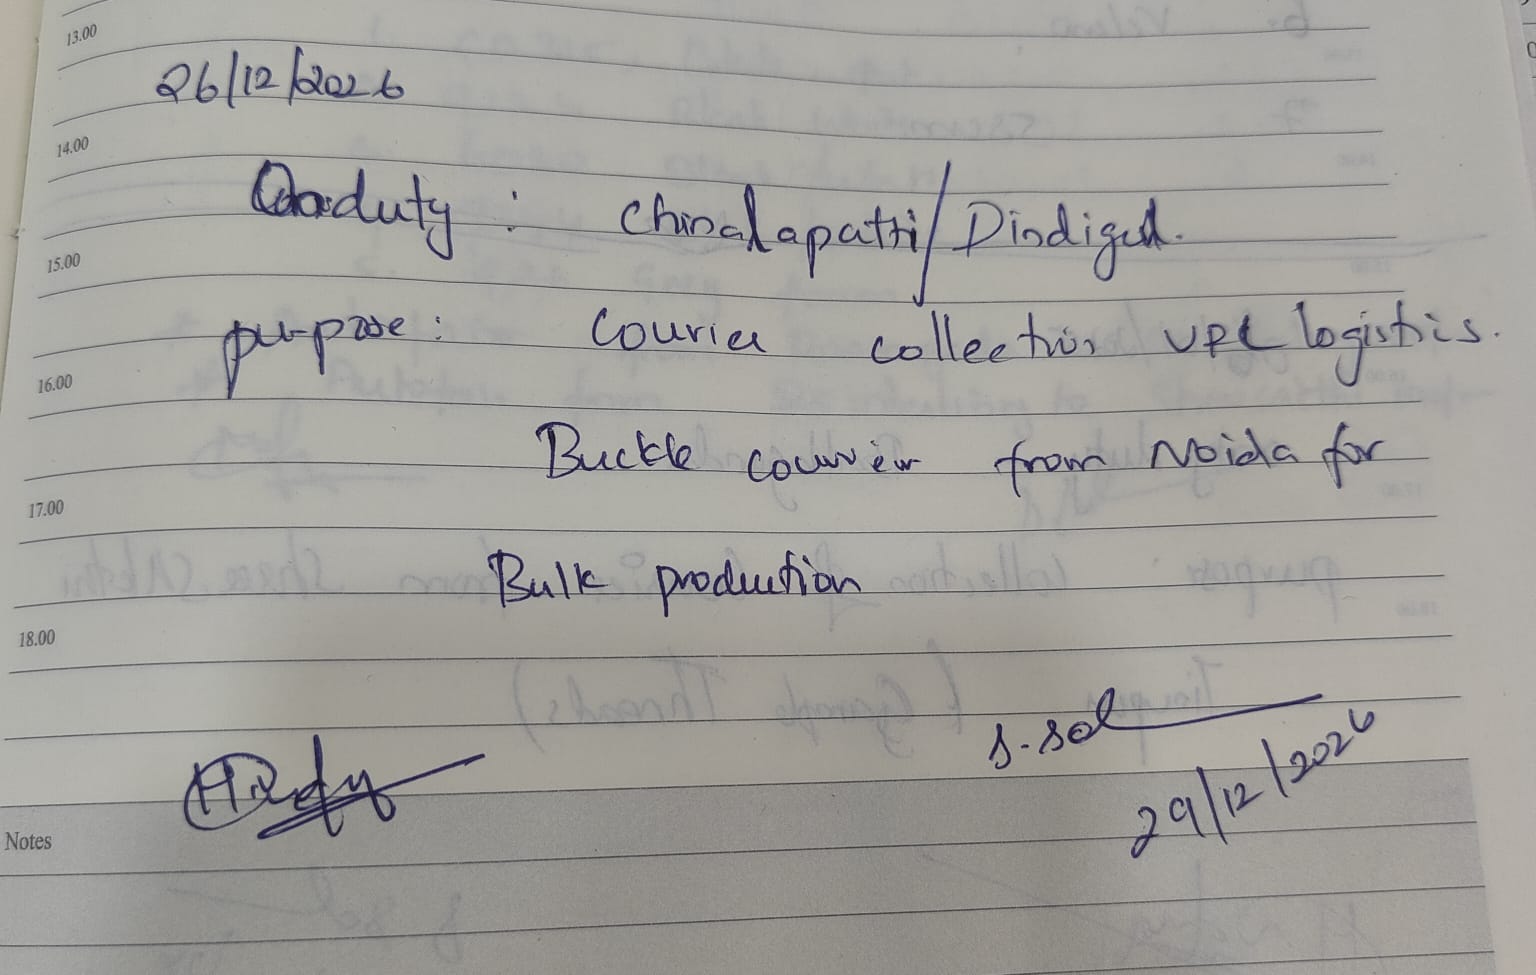 13.00
26/12/2026
14.00
Onduty : Chinalapatti/Dindigul.
15.00
purpose : Courier collection VPL logistics.
16.00
Buckle courier from Noida for
17.00
Bulk production
18.00
S. Sel
29/12/2026
Notes